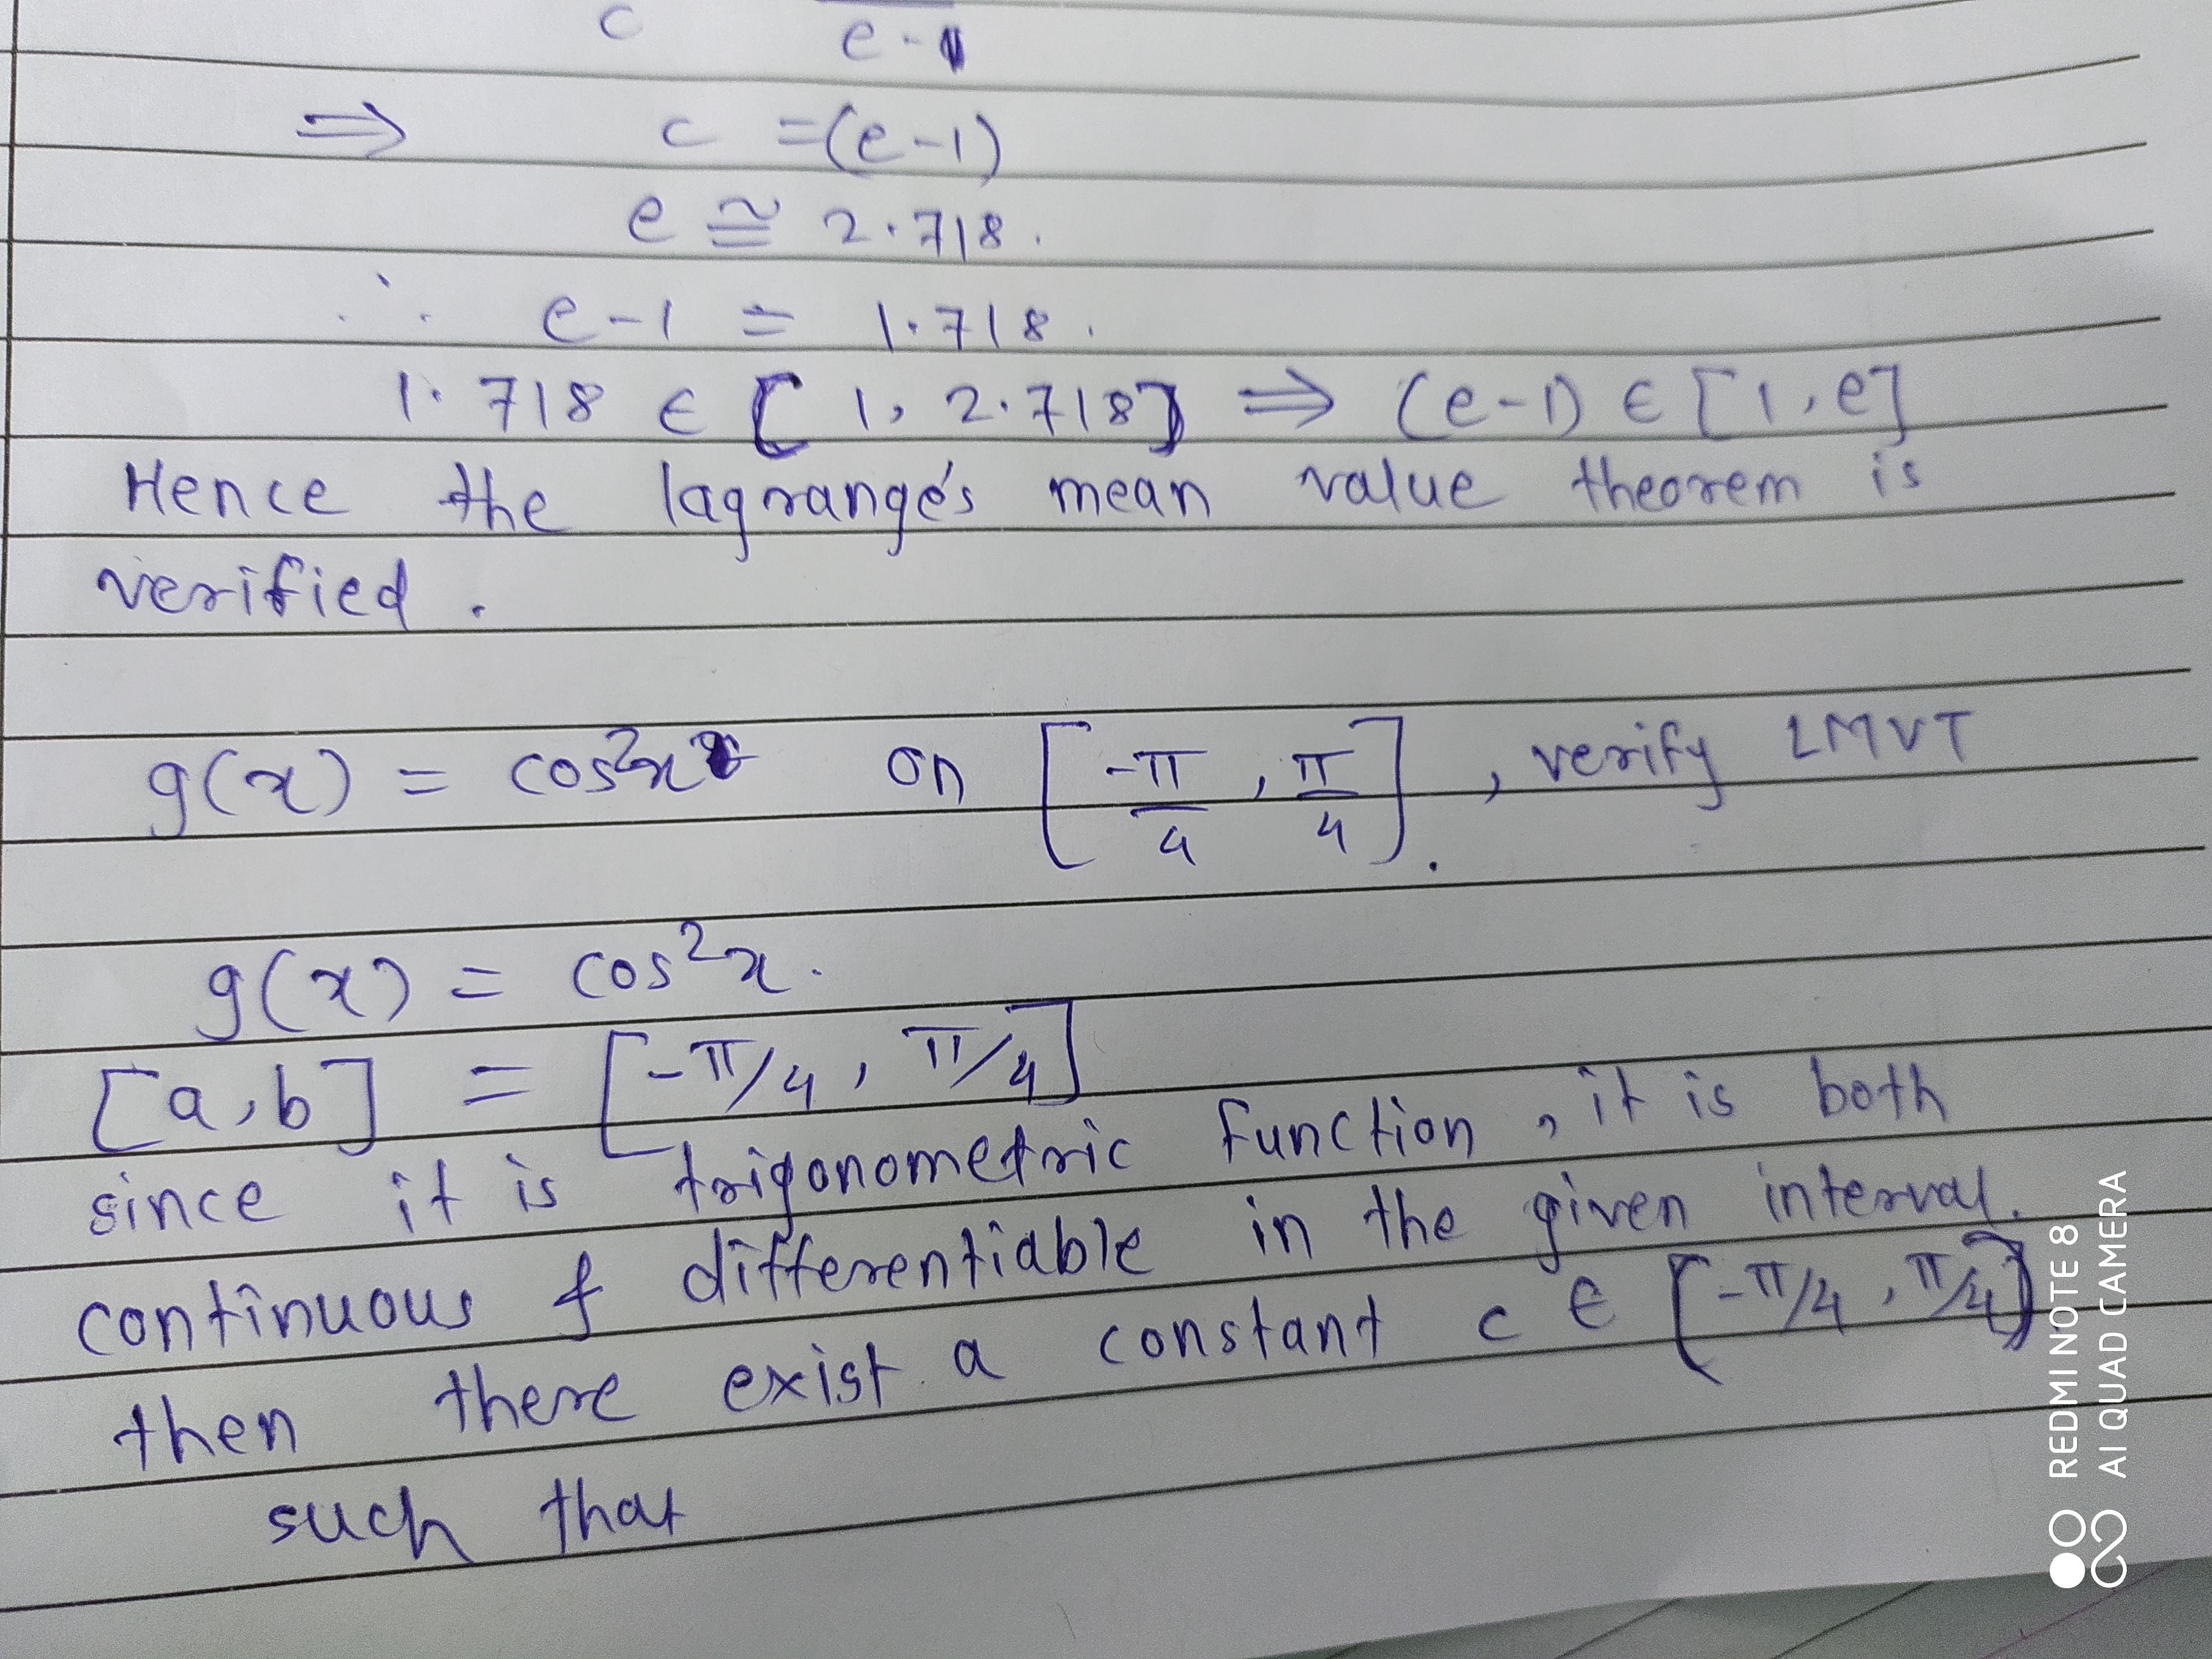 c e-1
⇒ c = (e-1)
e ≅ 2.718.
∴ e-1 = 1.718.
1.718 ∈ [1, 2.718] ⇒ (e-1) ∈ [1, e]
Hence the lagrange's mean value theorem is
verified.
g(x) = cos²x on [-π/4, π/4], verify LMVT
g(x) = cos²x.
[a, b] = [-π/4, π/4]
since it is trigonometric function, it is both
continuous & differentiable in the given interval.
then there exist a constant c ∈ [-π/4, π/4]
such that
REDMI NOTE 8
AI QUAD CAMERA